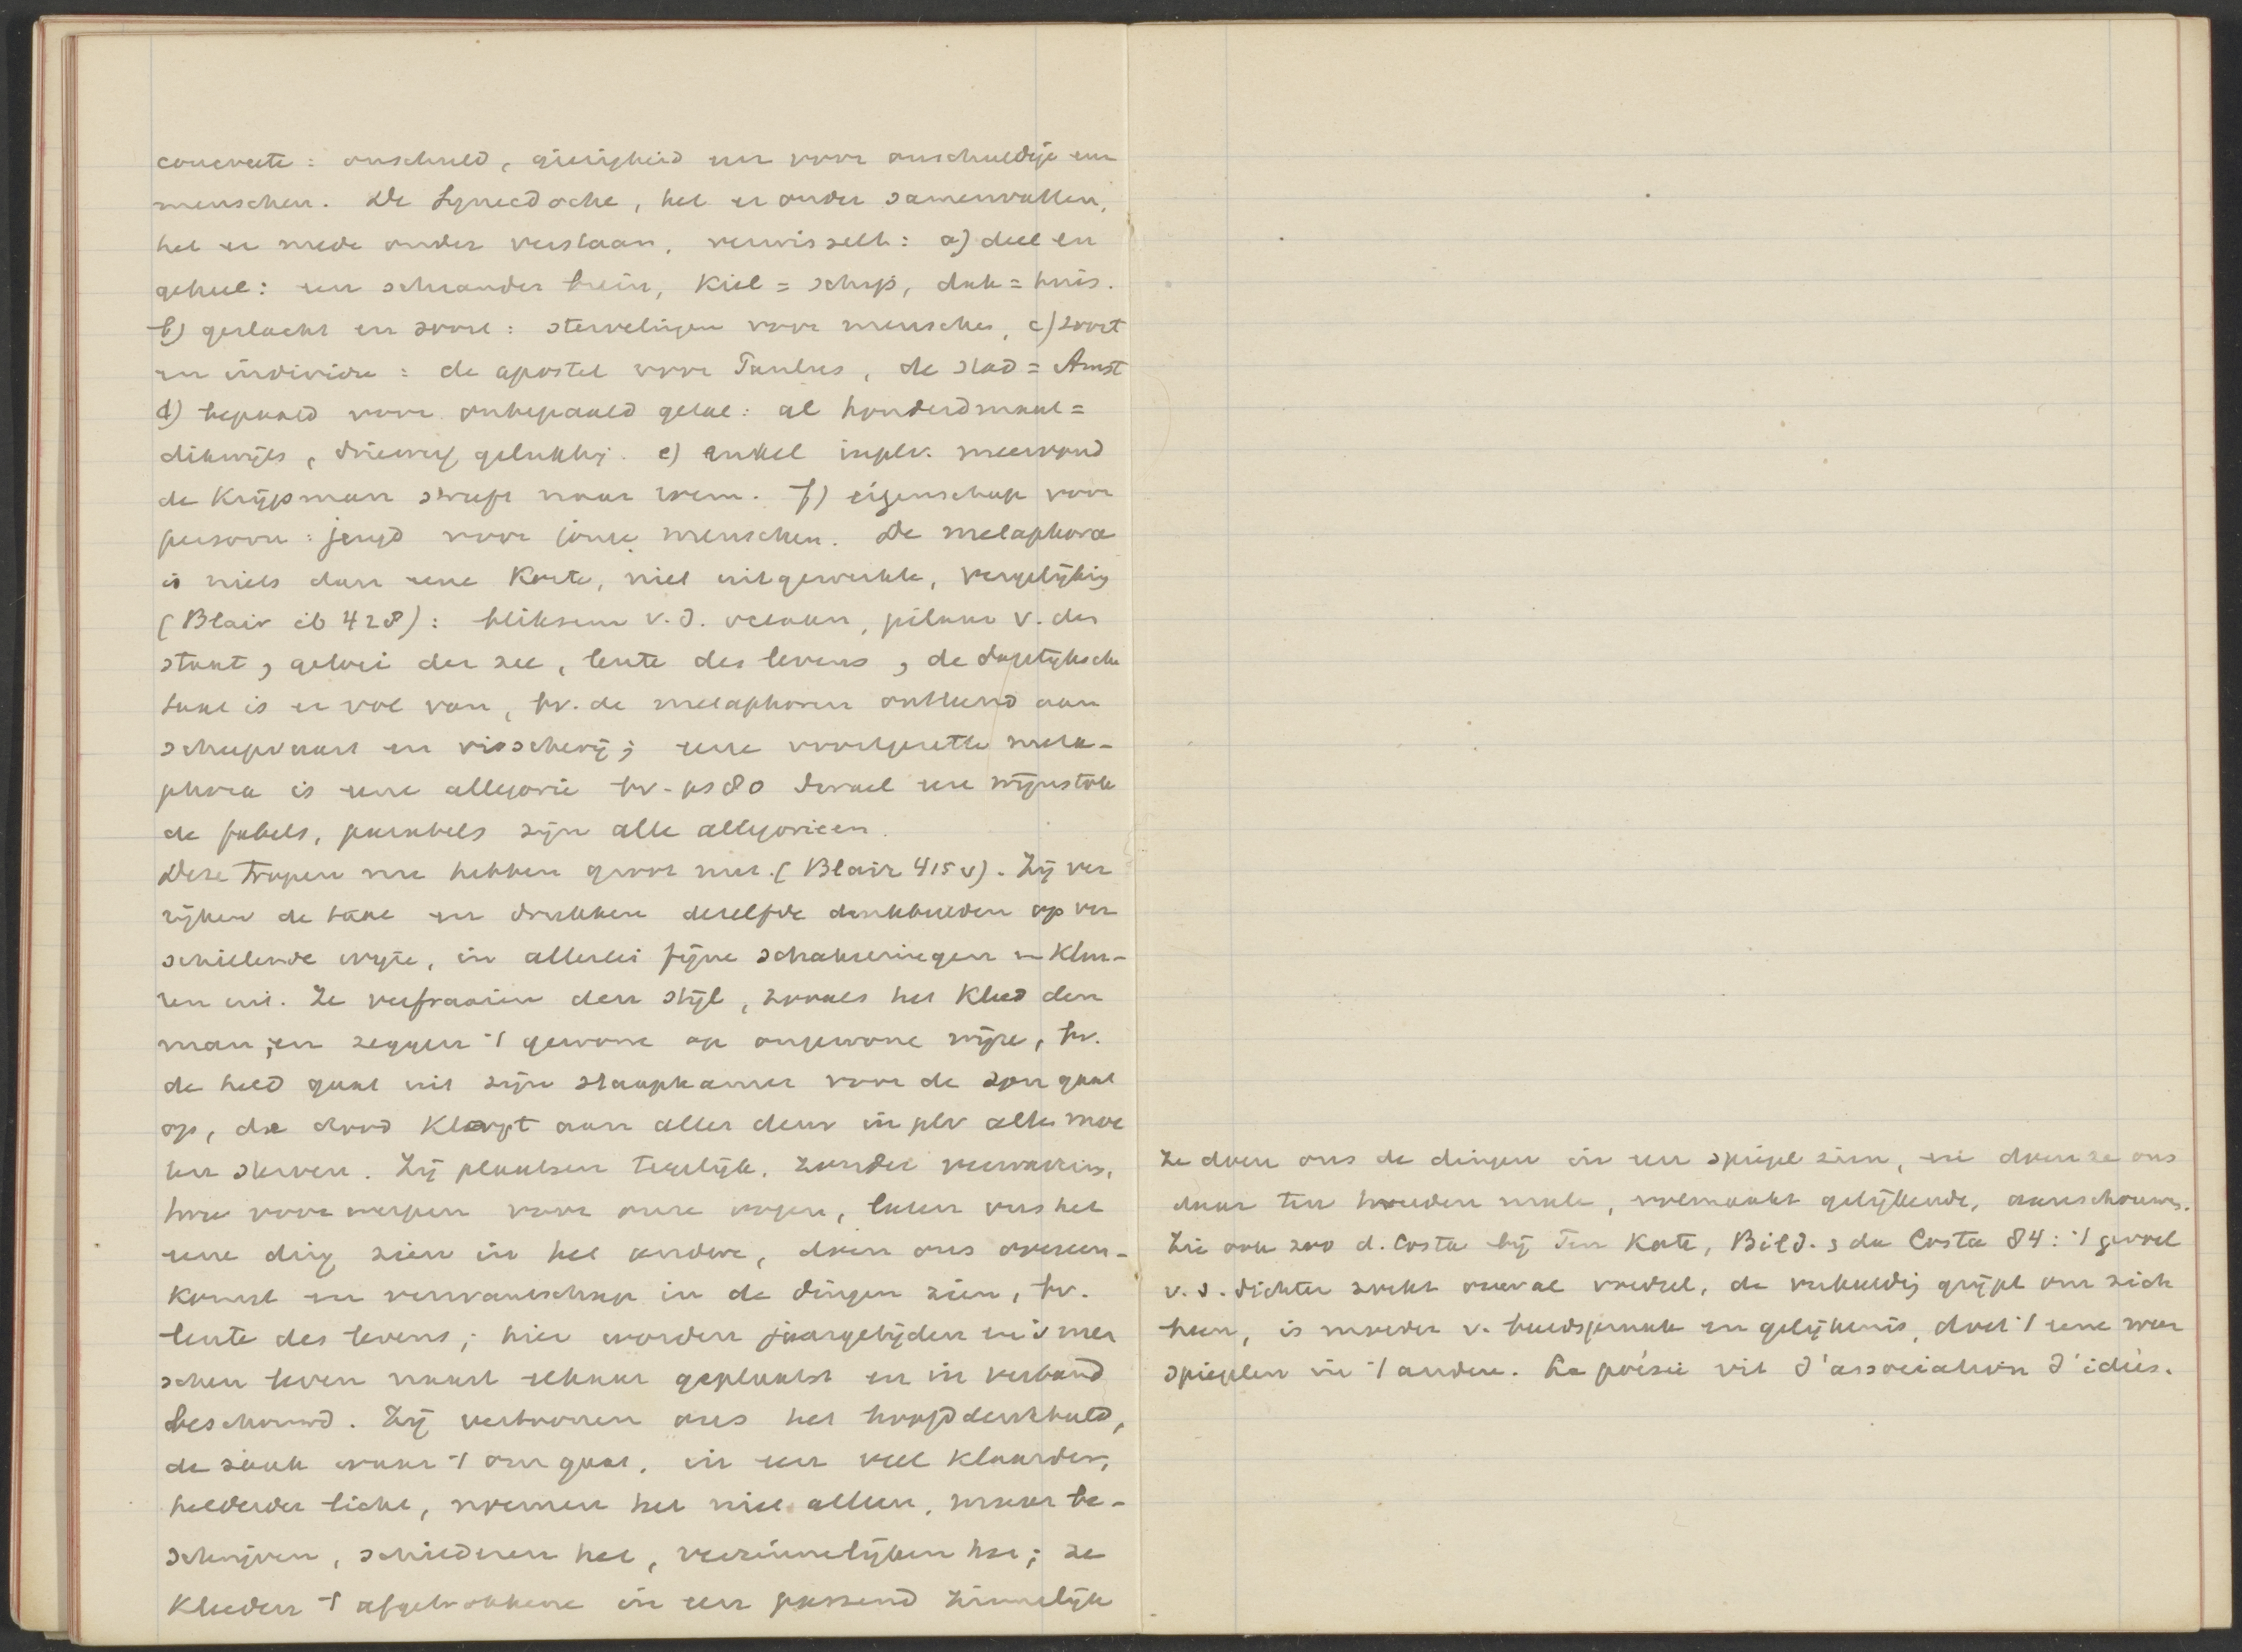 concreete: onschuld, gierigheid enz voor onschuldige enz
menschen. De Synecdoche, het er onder samenvatten,
het er mede onder verstaan, verwisselt: a) deel en
geheel: een schrander brein, Kiel = schip, dak = huis.
b) geslacht en soort: stervelingen voor menschen, c) soort
en individu: de apostel voor Paulus, de stad = Amst
d) bepaald voor onbepaald getal: al honderdmaal =
dikwijls, driewerf gelukkig. e) enkel inplv. meervoud
de Krijgsman snuft naar roem. f) eigenschap voor
persoon: jeugd voor jonge menschen. De metaphora
is niets dan eene Korte, niet uitgewerkte, vergelijking
(Blair ib 428): bliksem v. d. oceaan, pilaar v. den
staat, geloei der zee, lente des levens, de dagelijksche
taal is er vol van, bv. de metaphoren ontleend aan
scheepvaart en visscherij; eene voortgezette meta-
phora is eene allegorie bv. ps 80 Israel een wijnstok
de fabels, parabels zijn alle allegorieen.
Deze Tropen nu hebben groot nut. (Blair 415 v). Zij ver
rijken de taal en drukken dezelfde denkbeelden op ver
schillende wijze, in allerlei fijne schakeeringen en Kleu-
ren uit. Ze verfraaien den stijl, zooals het Kleed den
man, en zeggen 't gewone op ongewone wijze, bv.
de held gaat uit zijn slaapkamer voor de zon gaat
op, de dood Klopt aan aller deur in plv alles moe
ten sterven. Zij plaatsen tegelijk, zonder verwarring,
twee voorwerpen voor onze oogen, laten ons het
eene ding zien in het andere, doen ons overeen-
komst en verwantschap in de dingen zien, bv.
lente des levens; hier worden jaargetijden en 's men
schen leven naast elkaar geplaatst en in verband
beschouwd. Zij vertoonen ons het hoofddenkbeeld,
de zaak waar 't om gaat, in een veel klaarder,
helderder licht, noemen het niet alleen, maar be-
schrijven, schilderen het, verzinnelijken het; ze
Kleeden 't afgetrokkene in een passend zinnelijk
Ze doen ons de dingen in een spiegel zien, en doen ze ons
daar ten tweeden male, volmaakt gelijkende, aanschouwen.
Zie ook zoo d. Costa bij Ten Kate, Bild. & da Costa 84: 't gevoel
v. d. dichter zoekt overal voedsel, de verbeelding grijpt om zich
heen, is moeder v. beeldspraak en gelijkenis, doet 't eene weer
spiegelen in 't andere. La poésie vit d'association d'idées.